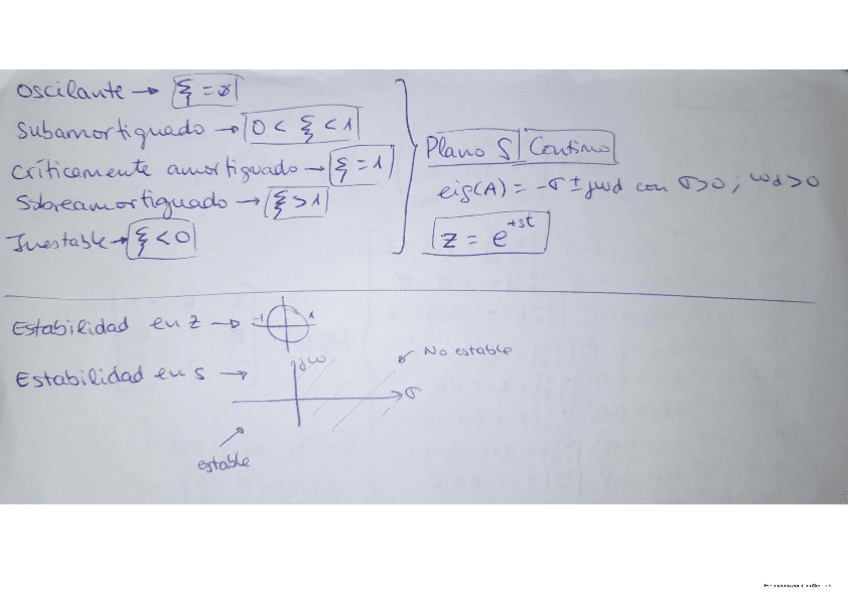 Oscilante → ξ = 0
Subamortiguado → 0 < ξ < 1
Críticamente amortiguado → ξ = 1
Sobreamortiguado → ξ > 1
Inestable → ξ < 0
Plano S Continuo
eig(A) = -σ ± jωd con σ>0 ; ωd>0
z = e^{+st}
Estabilidad en z → -1 1
Estabilidad en s →
jω
No estable
σ
estable